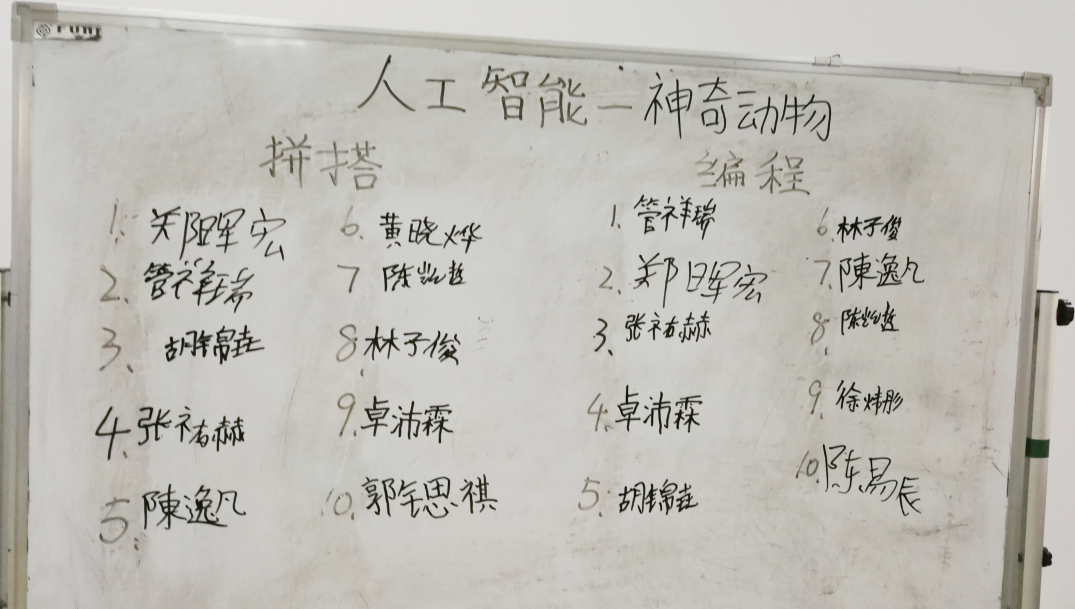 人工智能—神奇动物
拼搭
1. 郑晖宏
2. 管祥瑞
3、胡锦垚
4、张祐赫
5、陳逸凡
6. 黄晓烨
7 陈悦哲
8. 林子俊
9. 卓沛霖
10. 郭钰思祺
编程
1. 管祥瑞
2. 郑晖宏
3、张祐赫
4. 卓沛霖
5. 胡锦垚
6. 林子俊
7. 陳逸凡
8. 陈
9. 徐炜彤
10. 陈易辰